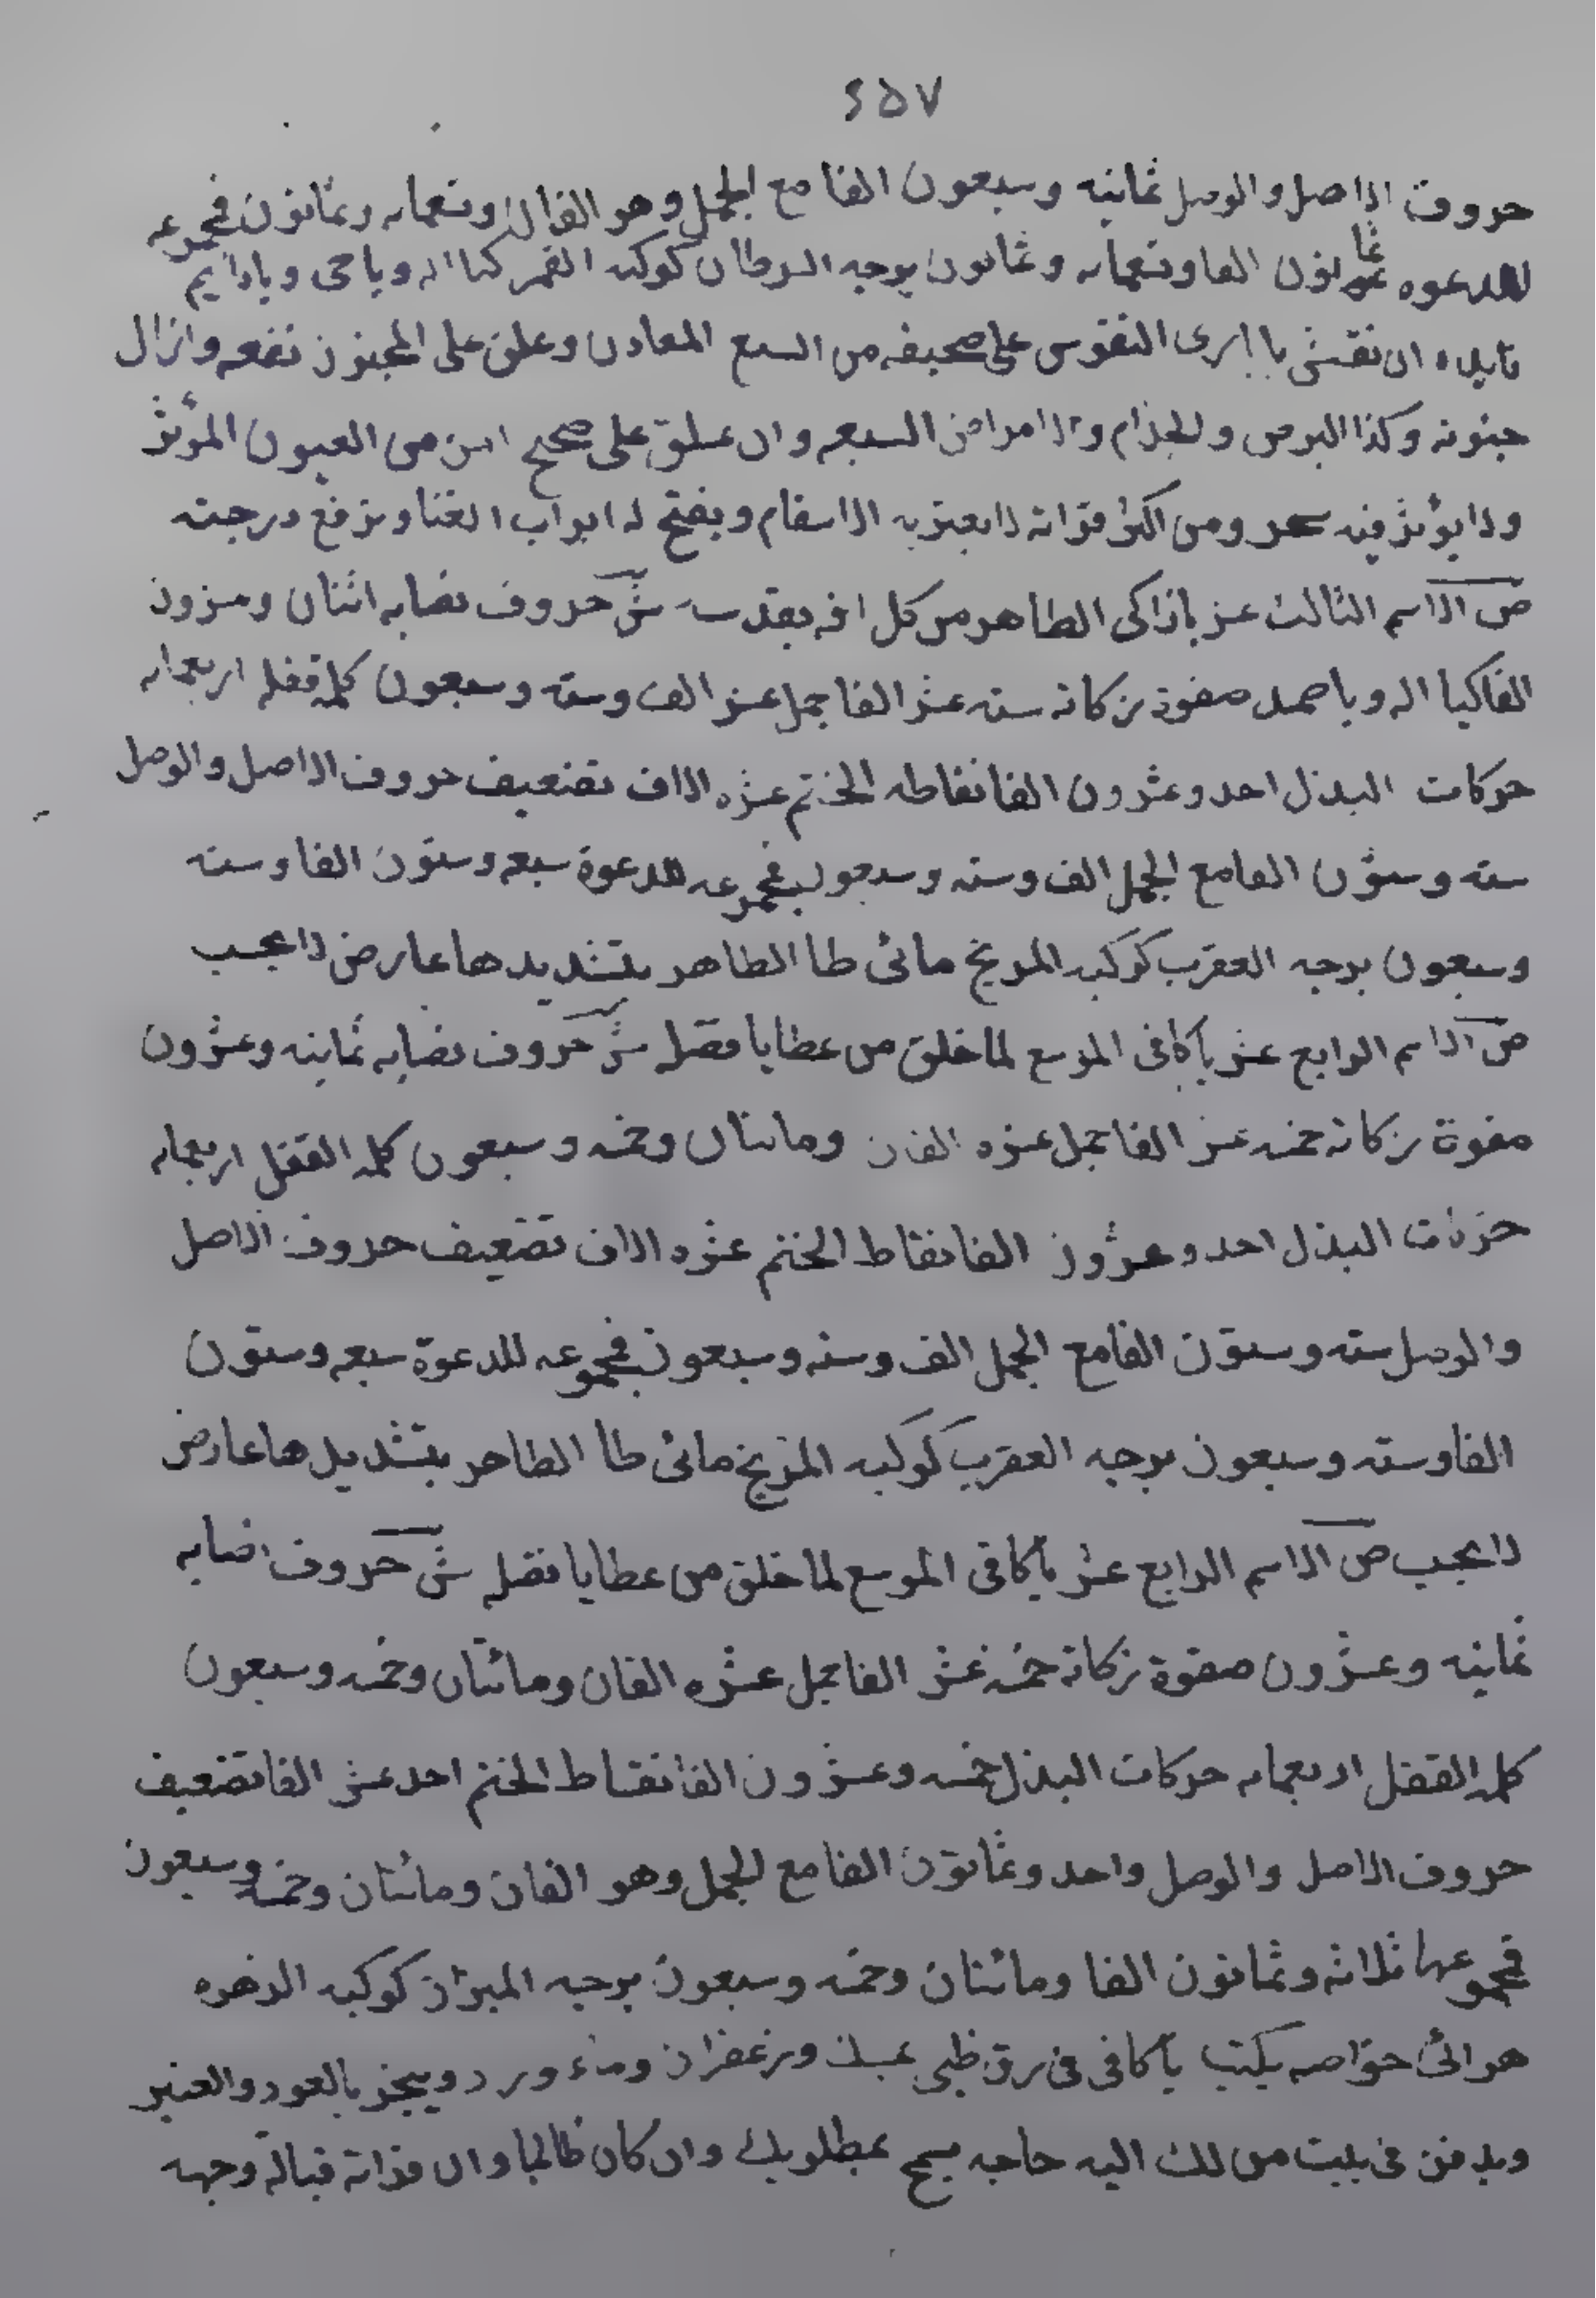 ٤٥٧
حروف الاصل والوصل ثمانيه وسبعون الفا مع الجمل وهو الفا وتسعمايه وثمانون فمجموعه
للدعوه ثمانون الفا وتسعمايه وثمانون برجه السرطان كوكبه القمر وياحى ويادايم
ان نقش يا بارى النفوس على صحيفه من السبع المعادن وعلق على المجنون نفعه وازال
جنونه وكذا البرص والجذام والامراض السبعه وان علق على صحيح امن من العيون المؤثر
ولا يؤثر فيه سحر ومن اكثر قراته لا يعتريه الاسقام ويفتح له ابواب الغنا وترفع درجته
ص الاسم الثالث عشر يازاكى الطاهر من كل افه بقدسه ش حروف نصابه اثنان وعشرون
الفا كيا اله وياصمد صفوة زكاته سته عشر الفا جمل عشر الف وسته وسبعون كلمه قفله اربعمايه
حركات البذل احد وعشرون الفا نقاطه الختم عشره الاف تضعيف حروف الاصل والوصل
سته وستون الفا مع الجمل الف وسته وسبعون فمجموعه للدعوة سبعه وستون الفا وسته
وسبعون برجه العقرب كوكبه المريخ مائى طا الطاهر بتشديدها عارض لا يجب
ص الاسم الرابع عشر ياكافى الموسع لما خلق من عطايا فضله ش حروف نصابه ثمانيه وعشرون
صفوة زكاته خمسه عشر الفا جمل عشره الفان ومائتان وخمسه وسبعون كلمه القفل اربعمايه
حركات البذل احد وعشرون الفا نقاط الختم عشره الاف تضعيف حروف الاصل
والوصل سته وستون الفا مع الجمل الف وسته وسبعون فمجموعه للدعوة سبعه وستون
الفا وسته وسبعون برجه العقرب كوكبه المريخ مائى طا الطاهر بتشديدها عارض
لا يجب ص الاسم الرابع عشر ياكافى الموسع لما خلق من عطايا فضله ش حروف نصابه
ثمانيه وعشرون صفوة زكاته خمسه عشر الفا جمل عشره الفان ومائتان وخمسه وسبعون
كلمه القفل اربعمايه حركات البذل خمسه وعشرون الفا نقاط الختم احد عشر الفا تضعيف
حروف الاصل والوصل واحد وثمانون الفا مع الجمل وهو الفان ومائتان وخمسه وسبعون
فمجموعها ثلاثه وثمانون الفا ومائتان وخمسه وسبعون برجه الميزان كوكبه الزهره
هوائى خواصه يكتب ياكافى فى رق ظبى بمسك وزعفران وماء ورد ويبخر بالعود والعنبر
ويدفن فى بيت من لك اليه حاجه يسمح بمطلوبك وان كان ظالما وان قراته قبالة وجهه